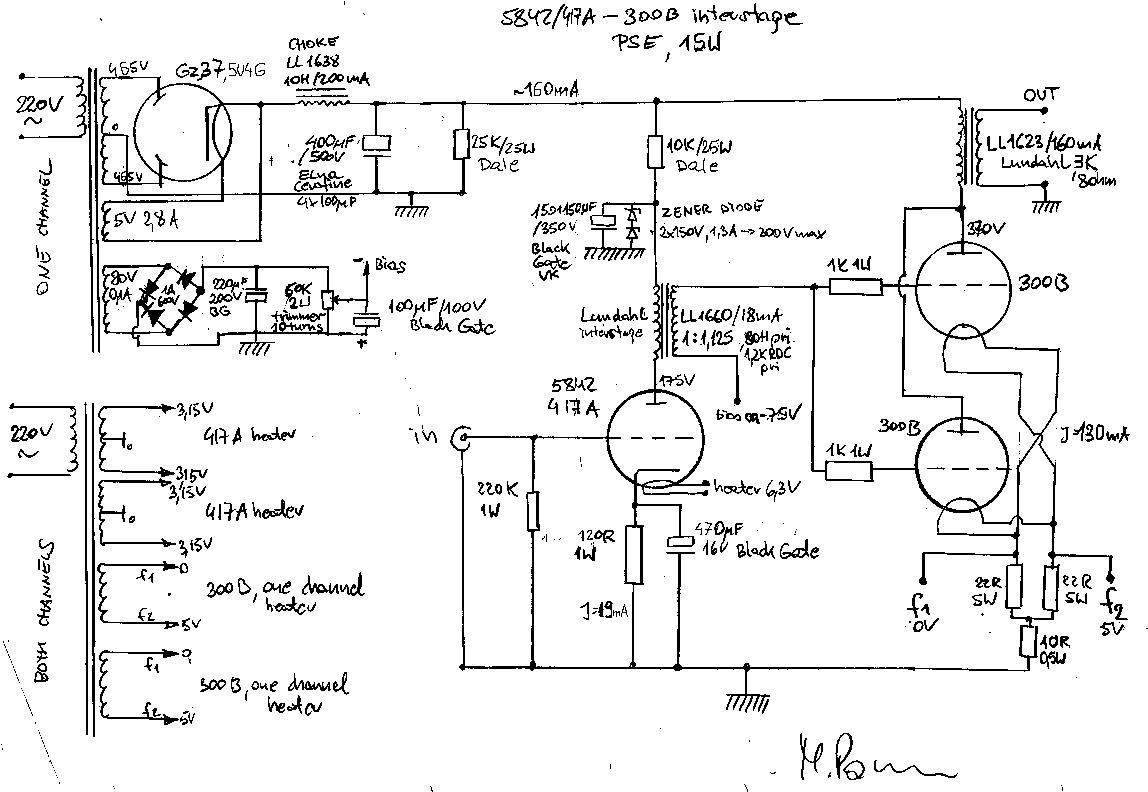 5842/417A – 300B interstage
PSE, 15W
CHOKE
LL1638
10H/200mA
465V
GZ37, 5V4G
220V
~
465V
5V 2,8A
ONE CHANNEL
400µF
/500V
Elna
Cerafine
4x100µF
25K/25W
Dale
~160mA
10K/25W
Dale
OUT
LL1623/160mA
Lundahl 3K
/8ohm
150+150µF
/350V
Black
Gate
VK
ZENER DIODE
2x150V, 1,3A → 200V max
80V
0,1A
1A
600V
220µF
200V
BG
50K
2W
trimmer
10 turns
- Bias
100µF/100V
Black Gate
+
Lundahl
interstage
LL1660/18mA
1:1,125
80H pri
1,2K RDC
pri
1K 1W
370V
300B
175V
bias ca -75V
5842
417A
in
heater 6,3V
220K
1W
120R
1W
J=19mA
470µF
16V Black Gate
1K 1W
300B
J=130mA
22R
5W
22R
5W
f1
0V
f2
5V
10R
0,5W
220V
~
3,15V
417A heater
3,15V
3,15V
417A heater
3,15V
f1 0
300B, one channel
heater
f2 5V
f1 0
300B, one channel
heater
f2 5V
BOTH CHANNELS